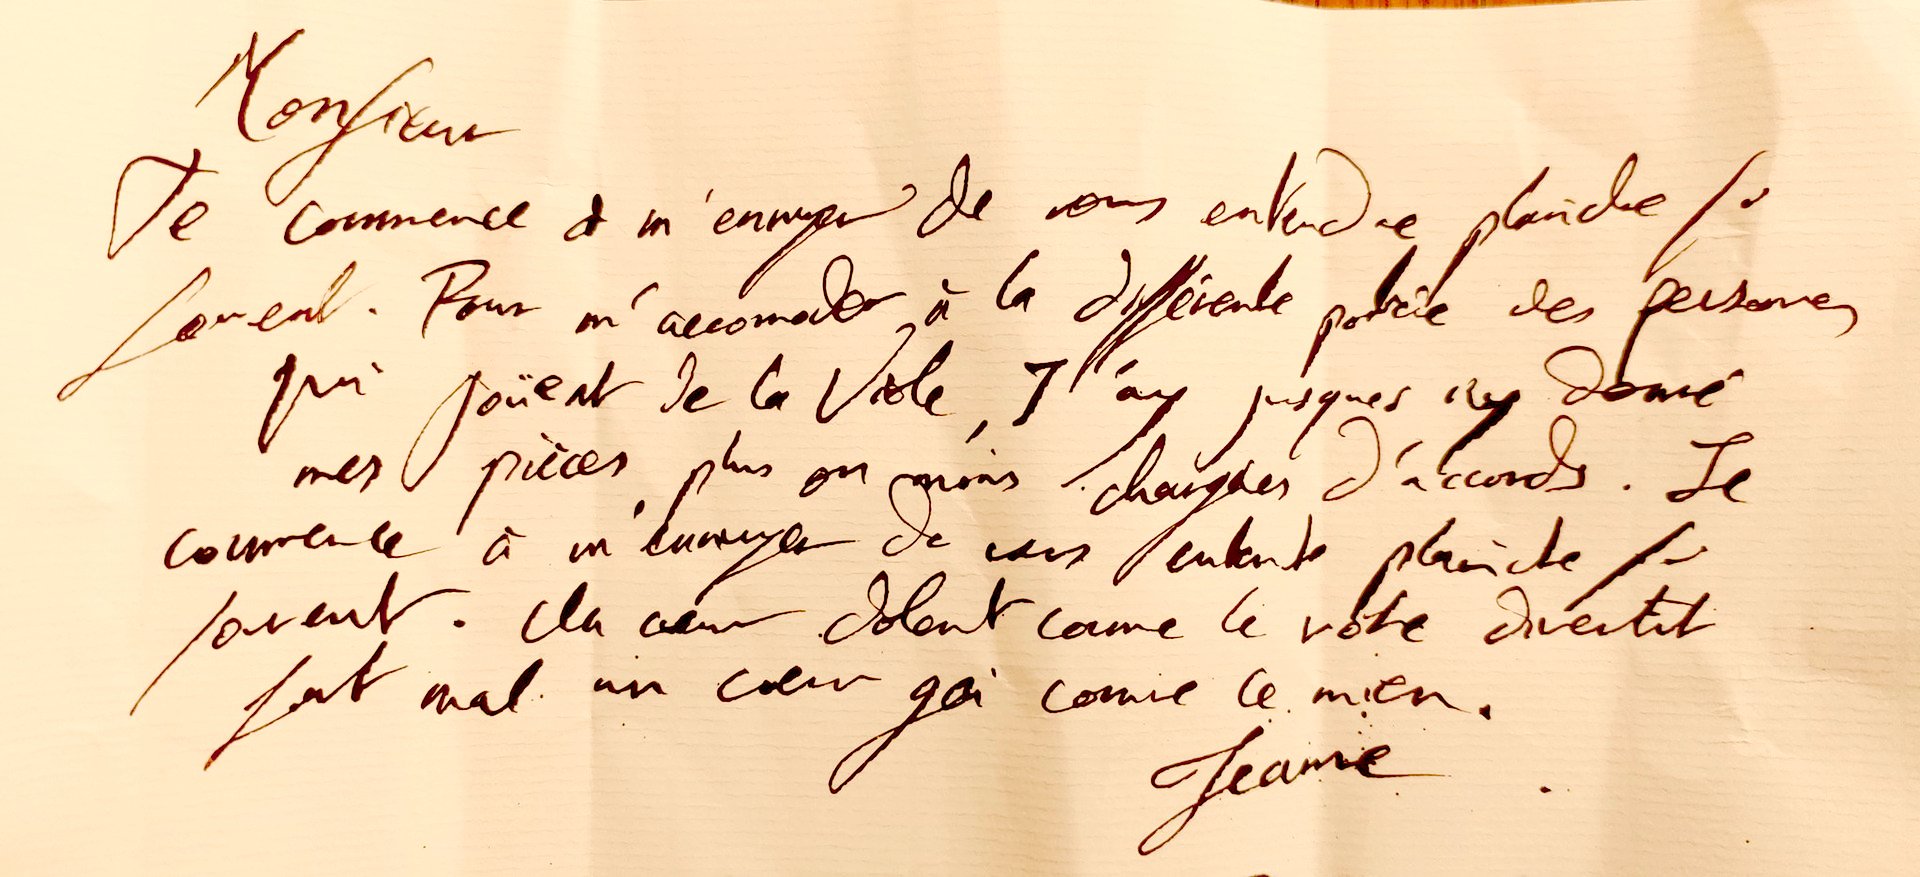 Monsieur
Je commence à m'ennuyer de vous entendre plaindre si
souvent. Pour m'accomoder à la différente portée des personnes
qui joüent de la Viole, J'ay jusques icy donné
mes pièces plus ou moins chargées d'accords. Je
commence à m'ennuyer de vous entendre plaindre si
souvent. Un cœur dolent comme le vôtre divertit
fort mal un cœur gai comme le mien.
Jeanne